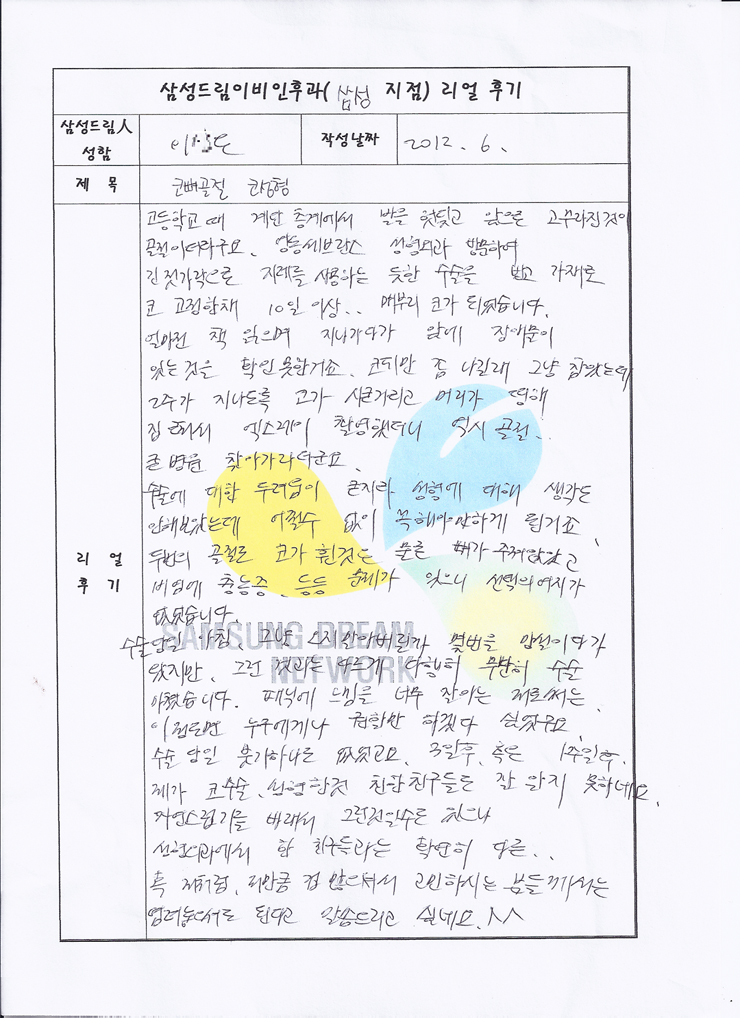 삼성드림이비인후과( 삼성 지점) 리얼 후기
삼성드림人 성함
작성날짜 2012. 6.
제 목 코뼈골절 코성형
고등학교 때 계단 층계에서 발을 헛딛고 앞으로 고꾸라진것이
골절이더라구요. 영동세브란스 성형외과 방문하여
긴 젓가락으로 지레를 사용하는 듯한 수술을 받고 가재로
코 고정한채 10일 이상.. 매부리 코가 되었습니다.
얼마전 책 읽으며 지나가다가 앞에 장애물이
있는 것을 확인 못한거죠. 코피만 좀 나길래 그냥 참았는데
2주가 지나도록 코가 시큰거리고 머리가 띵해
집 근처서 엑스레이 촬영했더니 역시 골절..
큰 병원 찾아가라더군요.
수술에 대한 두려움이 큰지라 성형에 대해 생각도
안해보았는데 어쩔수 없이 꼭해야만하게 된거죠.
두번의 골절로 코가 휜것은 물론 뼈가 주저앉았고
비염에 축농증. 등등 문제가 있으니 선택의 여지가
없었습니다.
수술당일 아침. 그냥 도망가버릴까 몇번을 망설이다가
왔지만. 그런 것과는 다르게 다행히 무난히 수술
마쳤습니다. 패닉에 느낌를 너무 잘아는 저로써는.
이정도면 누구에게나 권할만 하겠다 싶었구요.
수술 당일 붓기하나도 없었고요. 3일후. 혹은 1주일후.
제가 코수술. 성형한것 친한친구들도 잘 알지 못하네요.
자연스럽기를 바래서 그런것일수도 있으나
성형외과에서 한 친구들과는 확연히 다른..
혹 저처럼. 저만큼 겁 많으셔서 고민하시는 분들께서는
염려놓으셔도 된다고 말씀드리고 싶네요. ^^
리 얼
후 기
SAMSUNG DREAM
NETWORK